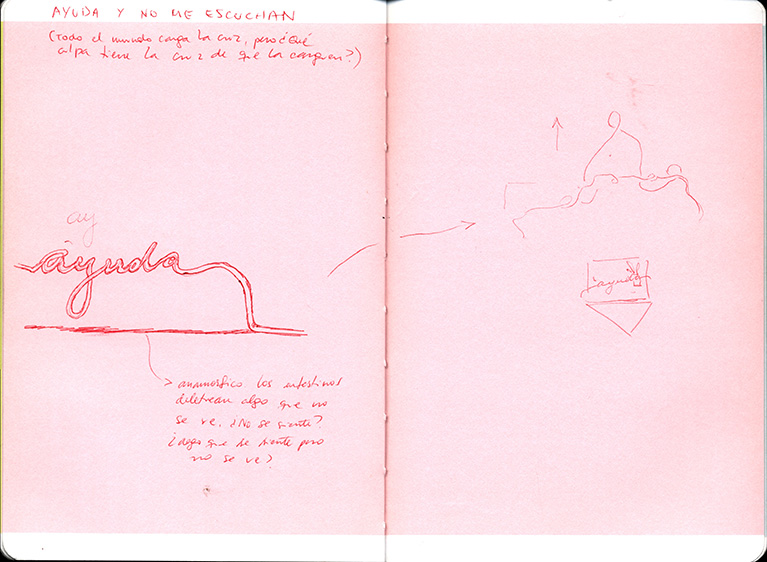 AYUDA Y NO ME ESCUCHAN
(Todo el mundo carga la cruz, pero ¿Qué
culpa tiene la cruz de que la carguen?)
ay
ayuda
anamorfico los intestinos
deletrean algo que no
se ve. ¿No se siente?
¿algo que se siente pero
no se ve?
¡ayuda!